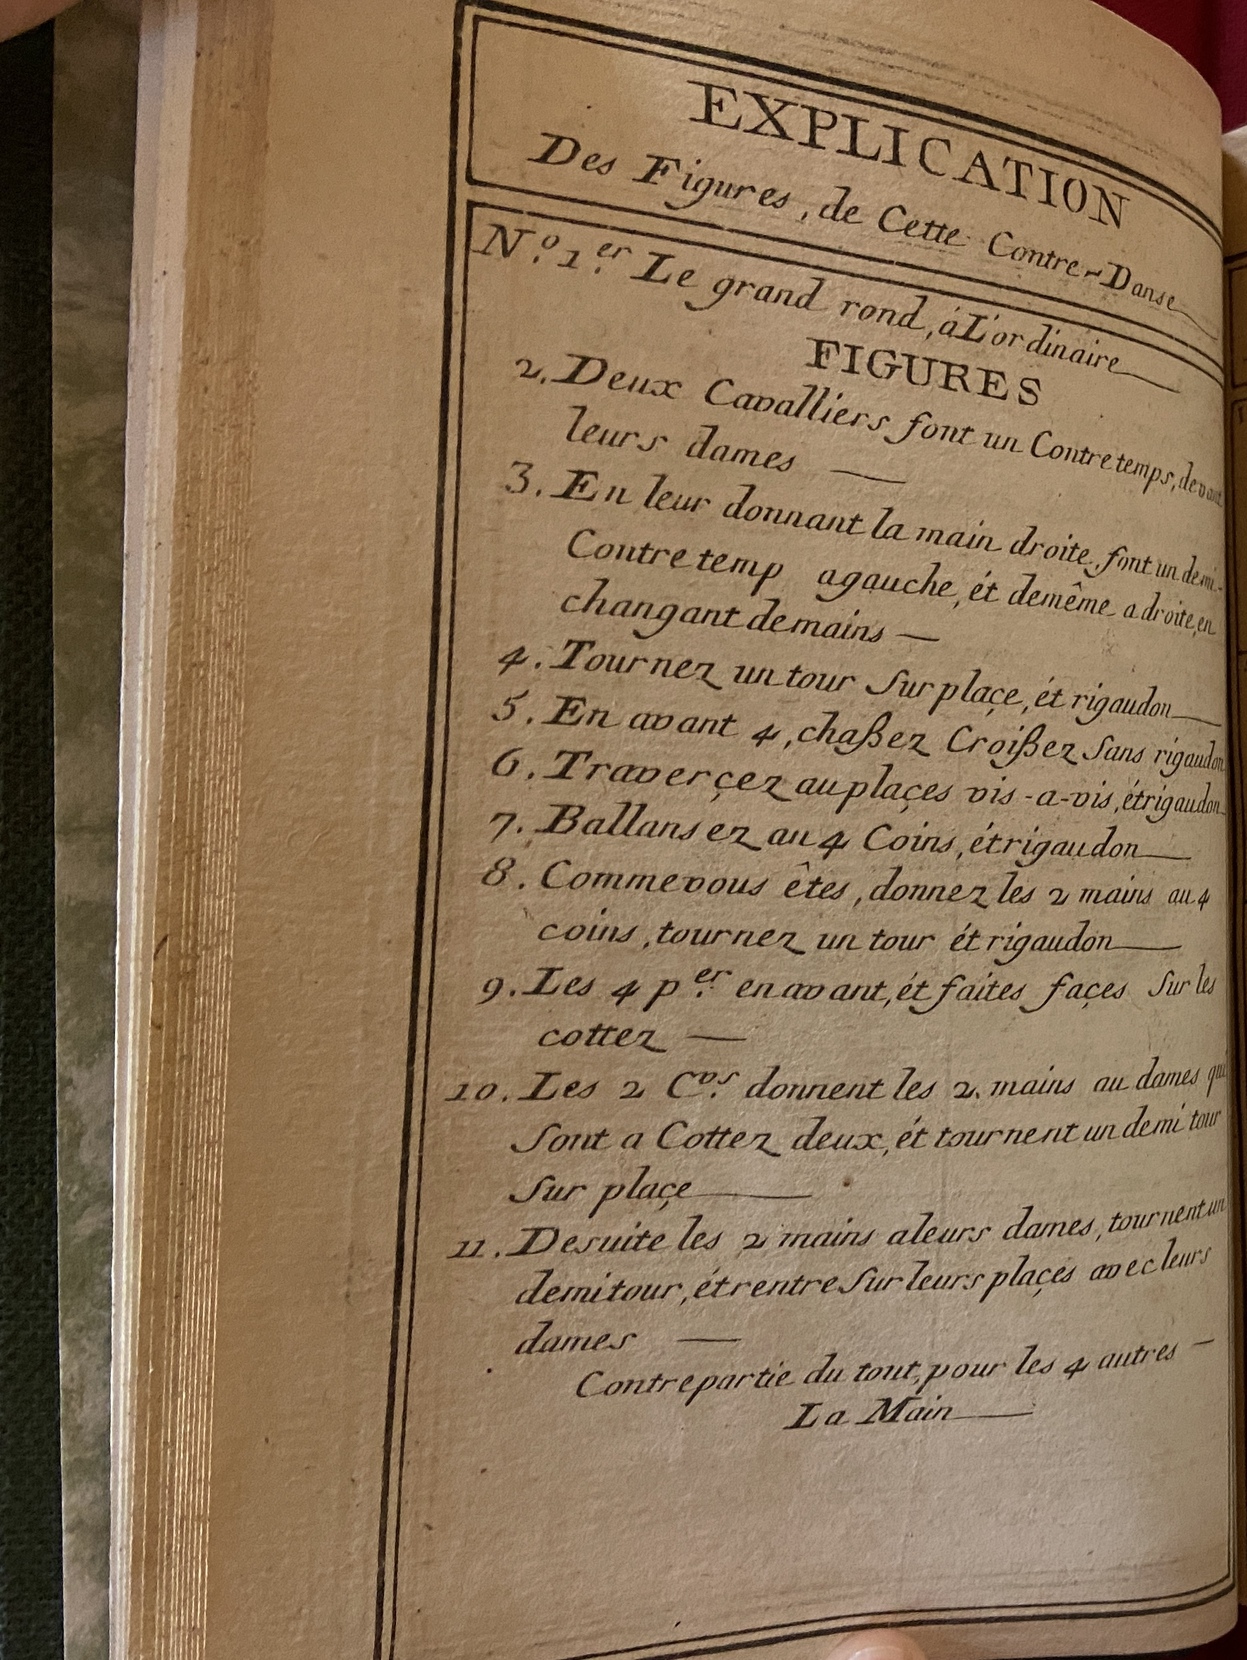 EXPLICATION
Des Figures, de Cette Contre-Danse
N.º 1.er Le grand rond, áL'ordinaire
FIGURES
2. Deux Cavalliers font un Contretemps, devant
leurs dames
3. En leur donnant la main droite, font un demi-
Contretemp agauche, ét demême adroite, en
changant demains
4. Tournez un tour Sur plaçe, ét rigaudon
5. En avant 4, chaßez Croißez Sans rigaudon
6. Traverçez auplaçes vis-a-vis, étrigaudon
7. Ballansez au 4 Coins, étrigaudon
8. Commevous êtes, donnez les 2 mains au 4
coins, tournez un tour ét rigaudon
9. Les 4 p.er enavant, ét faites façes Sur les
cottez
10. Les 2 C.vs donnent les 2. mains au dames qui
Sont a Cottez deux, ét tournent un demi tour
Sur plaçe
11. Desuite les 2 mains aleurs dames, tournent un
demitour, étrentre Sur leurs plaçes avec leurs
dames
Contrepartie du tout, pour les 4 autres
La Main